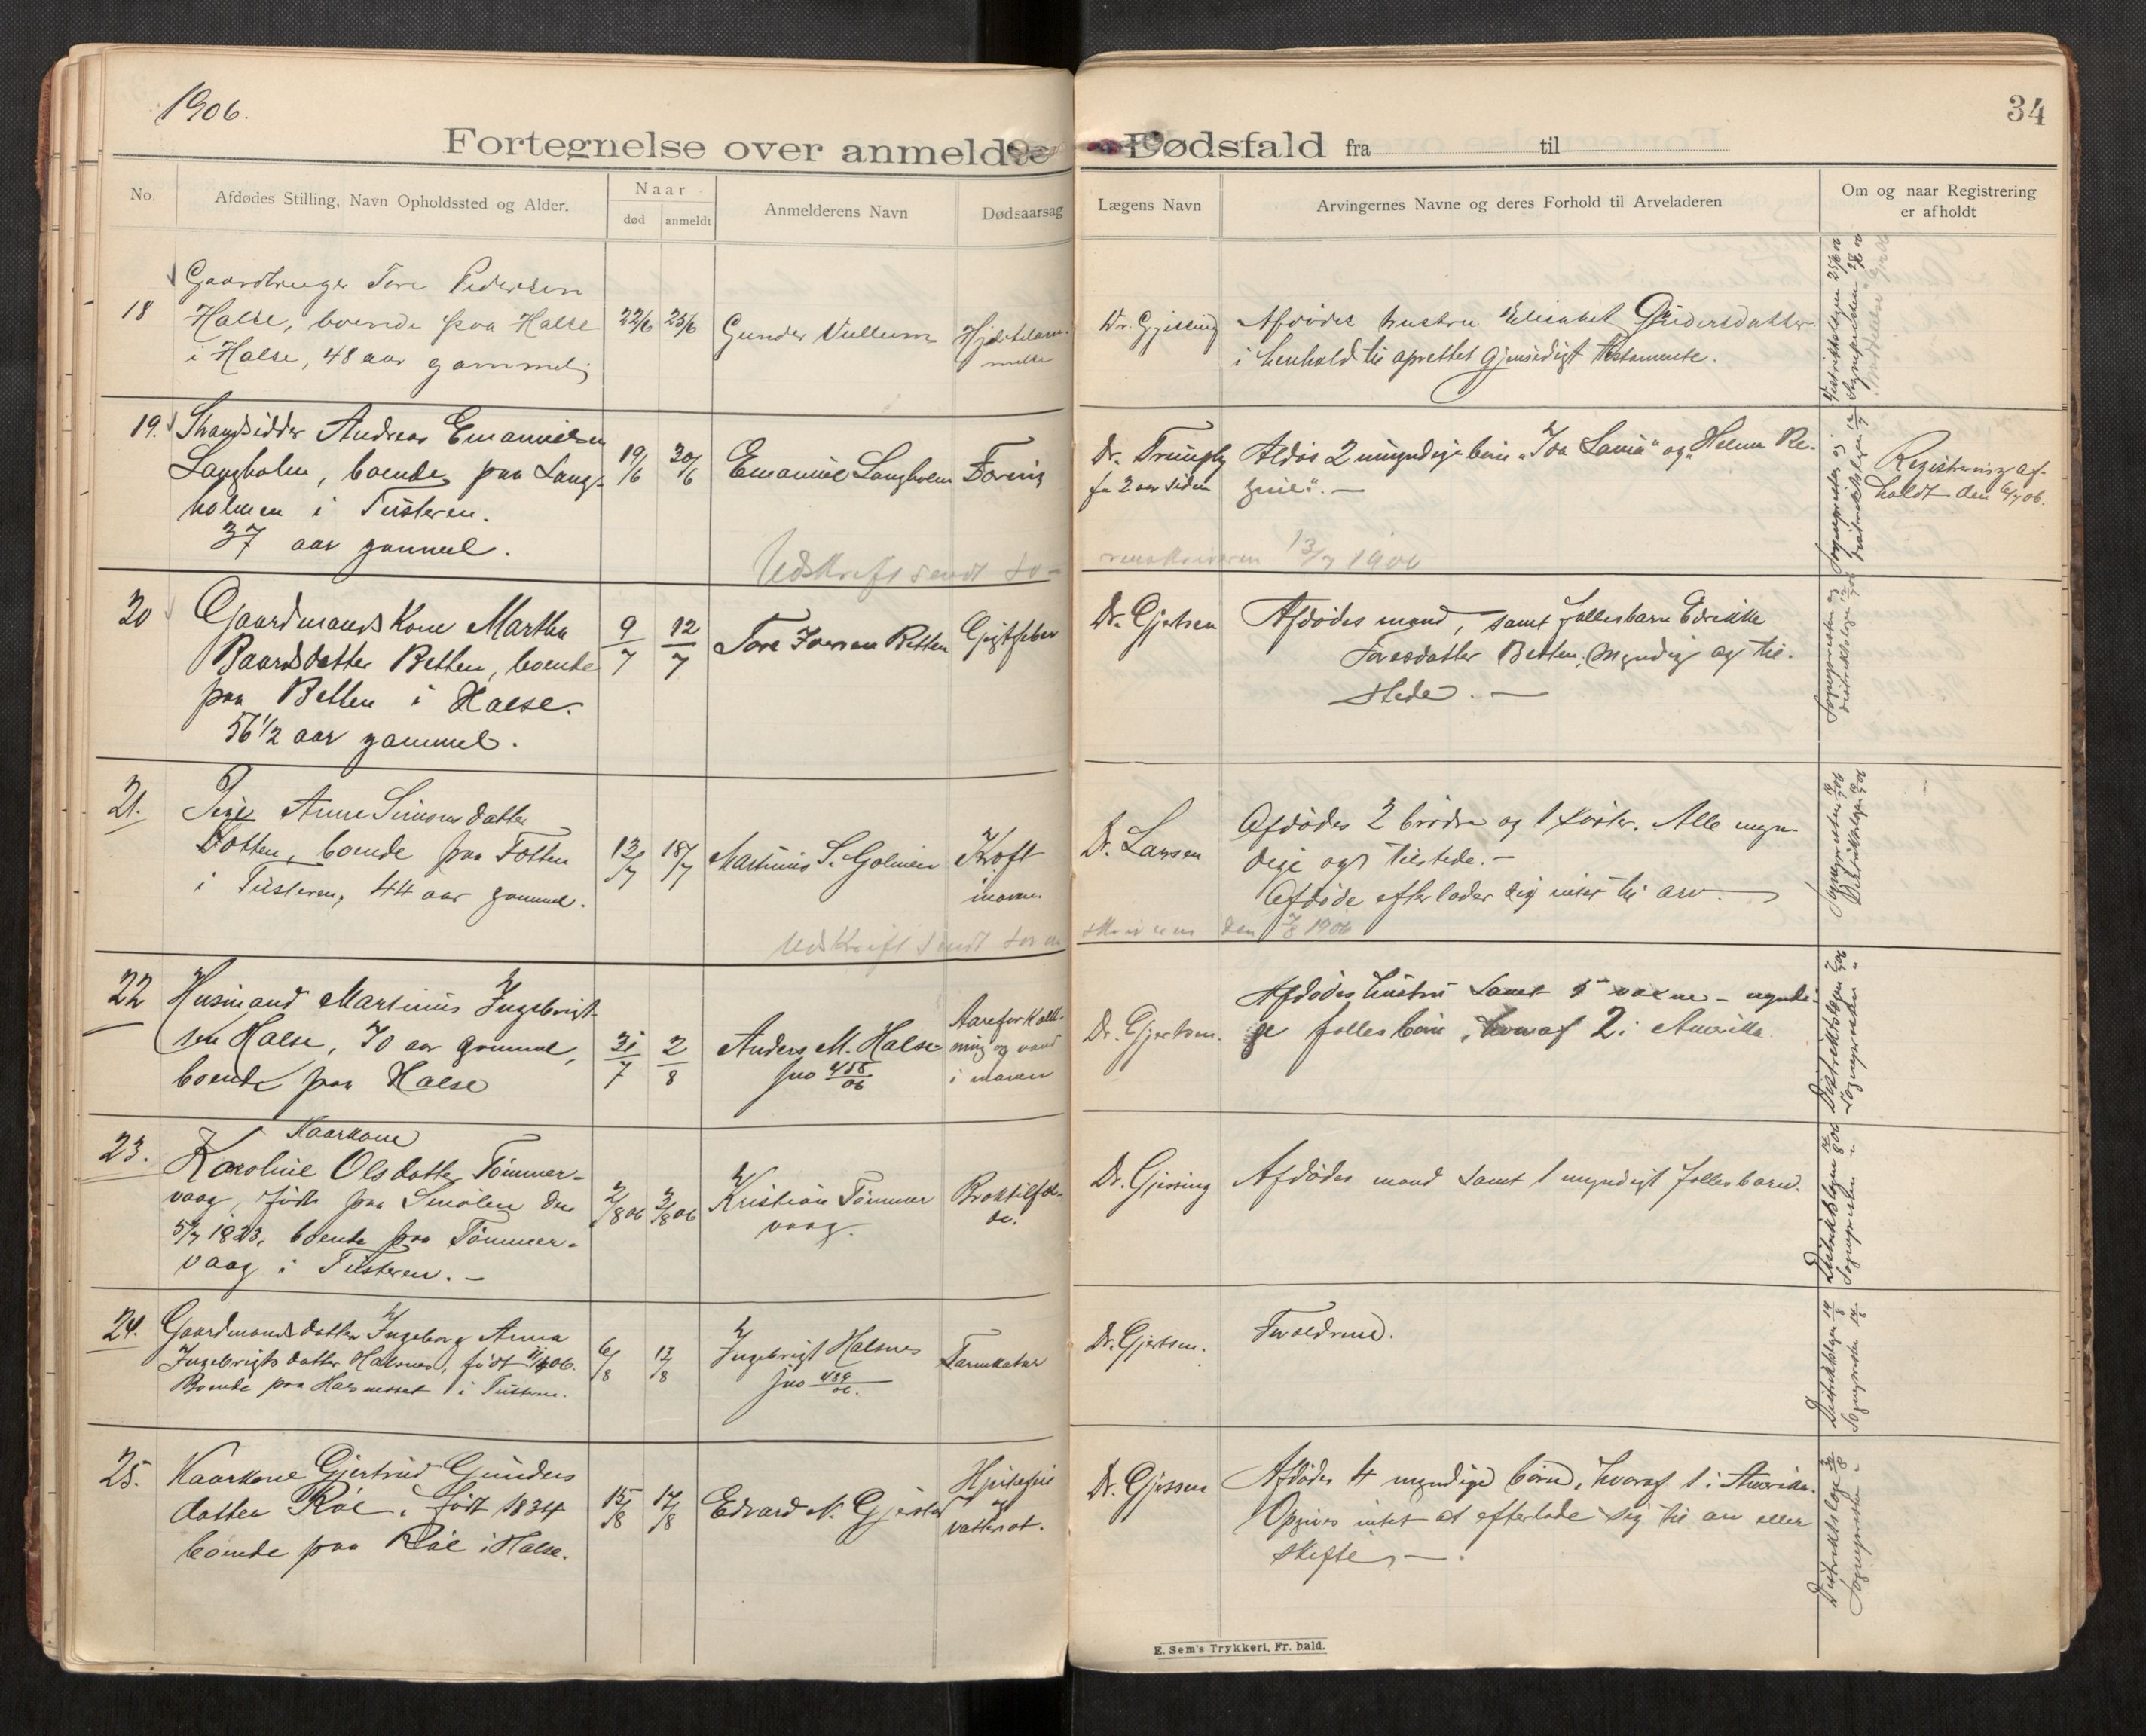 1906.
34
Fortegnelse over anmeldte Dødsfald fra til
No.
Afdødes Stilling, Navn Opholdssted og Alder.
Naar
død
anmeldt
Anmelderens Navn
Dødsaarsag
Lægens Navn
Arvingernes Navne og deres Forhold til Arveladeren
Om og naar Registrering
er afholdt
18
Gaardbruger Tore Pedersen
Halse, boende paa Halse
i Halse, 48 aar gammel
22/6
25/6
Gunder Vullum
Hjertelam-
melse
Afdødes hustru Elisabet Gundersdatter
i henhold til oprettet gjensidigt testamente.
19.
Strandsidder Andreas Emanuelsen
Langholm, boende paa Lang-
holmen i Tusteren.
37 aar gammel.
19/6
30/6
Emanuel Langholm
Dr.
for 2 aar siden
2 myndige og
Registrering af-
holdt den 6/7 06.
Udskrift sendt So-
renskriveren 13/7 1906
20
Gaardmands Kone Martha
Baardsdatter Betten, boende
paa Betten i Halse.
56 1/2 aar gammel.
9/7
12/7
Tore Betten
Gigtfeber
Dr. Gjertsen
Afdødes mand, samt fællesbarn
Toresdatter Betten, myndig og til-
stede. —
21.
Pige Anne Simonsdatter
Fotten, boende paa Fotten
i Tusteren, 44 aar gammel.
13/7
18/7
Martinus S. Golmen
Kræft
i maven.
Dr. Larsen
Afdødes 2 brødre og 1 søster. Alle myn-
dige og tilstede. —
Afdøde efterlader sig intet til arv. —
Udskrift sendt Soren
skriveren den 7/8 1906
22
Husmand Martinus Ingebrigt-
sen Halse, 70 aar gammel,
boende paa Halse
31/7
2/8
Anders M. Halse
jno 458/06
Aareforkalk-
ning og vand
i maven
Dr. Gjertsen.
Afdødes hustru samt 5 voxne - myndi-
ge fælles børn, hvoraf 2 i Amerika.
23.
Kaarkone
Karoline Olsdatter Tømmer-
vaag, født paa Smølen den
5/7 1823, boende paa Tømmer-
vaag i Tusteren. —
2/8 06
3/8 06
Kristian Tømmer
vaag.
Dr. Gjessing
Afdødes mand samt 1 myndigt fællesbarn.
24.
Gaardmandsdatter Ingeborg Anna
Ingebrigtsdatter Halsnes, født
Boende paa Halsnesset i Tusteren.
6/8
13/8
Ingebrigt Halsnes
jno 489/06.
Tarmkatar
Dr. Gjertsen.
Forældrene.
25.
Kaarkone Gjertrud Gunders
datter Røe, født 1834
boende paa Røe i Halse.
15/8
17/8
Edvard N. Gjerstad
Hjertefeil
vattersot.
Afdødes 4 myndige børn, hvoraf 1 i Amerika.
Opgives intet at efterlade sig til arv eller
skifte. —
E. Sem's Trykkeri, Fr. hald.